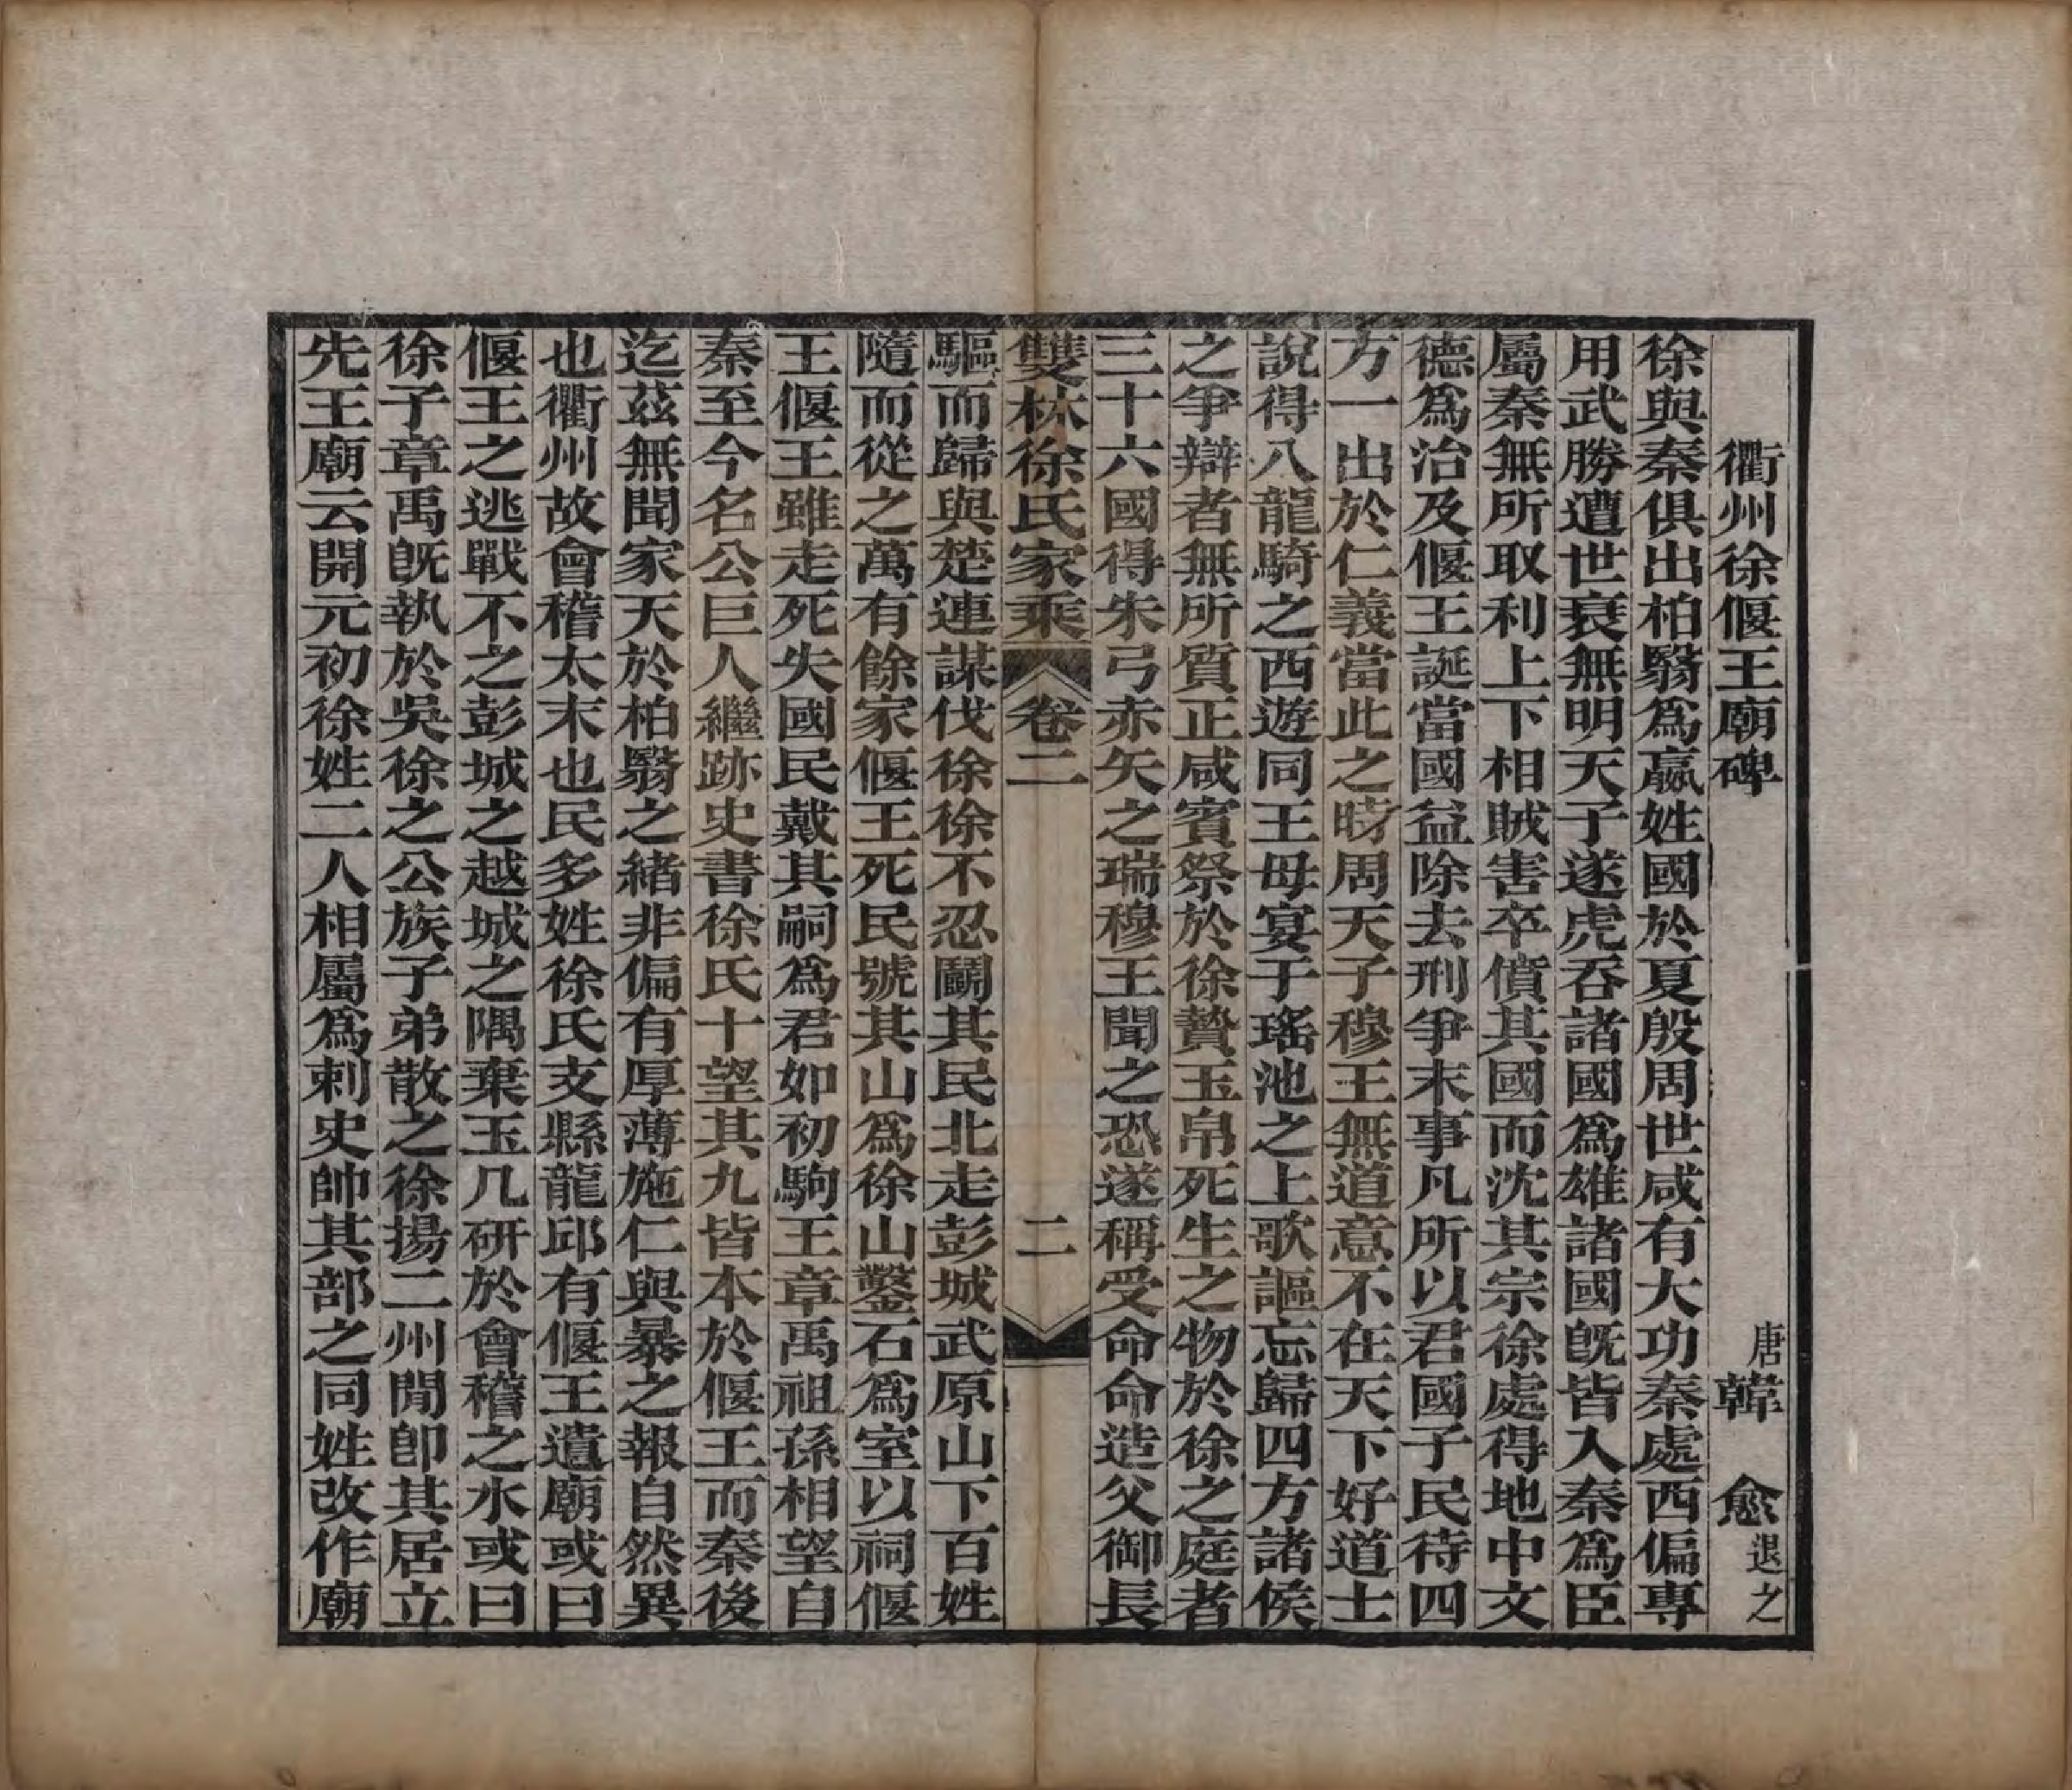 衢州徐偃王廟碑 唐韓愈退之
徐與秦俱出柏翳爲嬴姓國於夏殷周世咸有大功秦處西偏專
用武勝遭世衰無明天子遂虎吞諸國爲雄諸國旣皆入秦爲臣
屬秦無所取利上下相賊害卒僨其國而沈其宗徐處得地中文
德爲治及偃王誕當國益除去刑爭末事凡所以君國子民待四
方一出於仁義當此之時周天子穆王無道意不在天下好道士
說得八龍騎之西遊同王母宴于瑤池之上歌謳忘歸四方諸侯
之爭辯者無所質正咸賓祭於徐贄玉帛死生之物於徐之庭者
三十六國得朱弓赤矢之瑞穆王聞之恐遂稱受命命造父御長
雙林徐氏家乘 卷二 二
驅而歸與楚連謀伐徐徐不忍鬭其民北走彭城武原山下百姓
隨而從之萬有餘家偃王死民號其山爲徐山鑿石爲室以祠偃
王偃王雖走死失國民戴其嗣爲君如初駒王章禹祖孫相望自
秦至今名公巨人繼跡史書徐氏十望其九皆本於偃王而秦後
迄茲無聞家天於柏翳之緒非偏有厚薄施仁與暴之報自然異
也衢州故會稽太末也民多姓徐氏支縣龍邱有偃王遺廟或曰
偃王之逃戰不之彭城之越城之隅棄玉几研於會稽之水或曰
徐子章禹旣執於吳徐之公族子弟散之徐揚二州閒卽其居立
先王廟云開元初徐姓二人相屬爲刺史帥其部之同姓改作廟